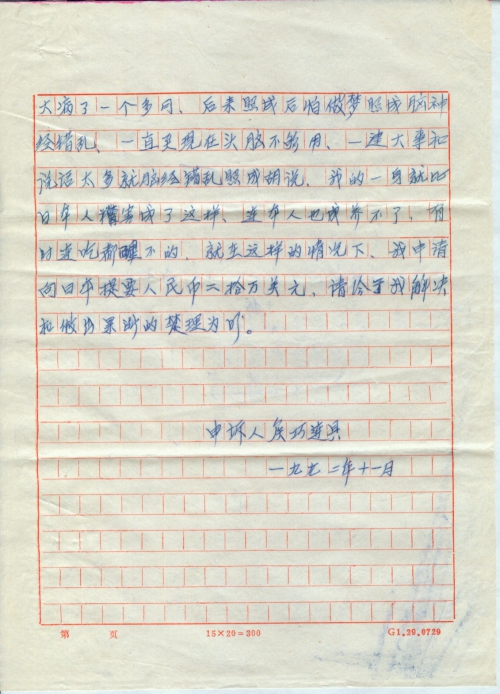 大病了一个多月、后来照成后怕做梦照成脑神
经错乱、一直至现在头脑不够用、一建大事和
说话太多就脑经错乱照成胡说、我的一身就叫
日本人害成了这样、连本人也成养不了、有
时连吃都不的、就在这样的情况下、我申请
向日本提要人民币二拾万美元、请给于我解决
和做出果断的楚理为盼。
申诉人侯巧连具
一九九二年十一月
第 页
15×20=300
G1.29.0729